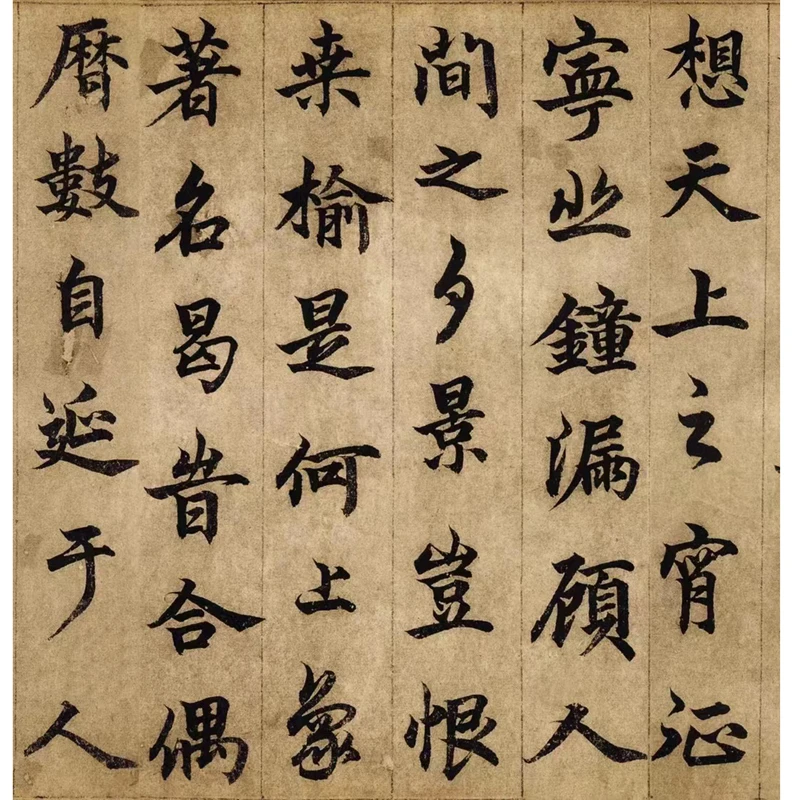 想天上之宵征
寧鐘漏顧人
間之夕景豈恨
桑榆是何上象
著名曷旹合偶
曆數自延于人